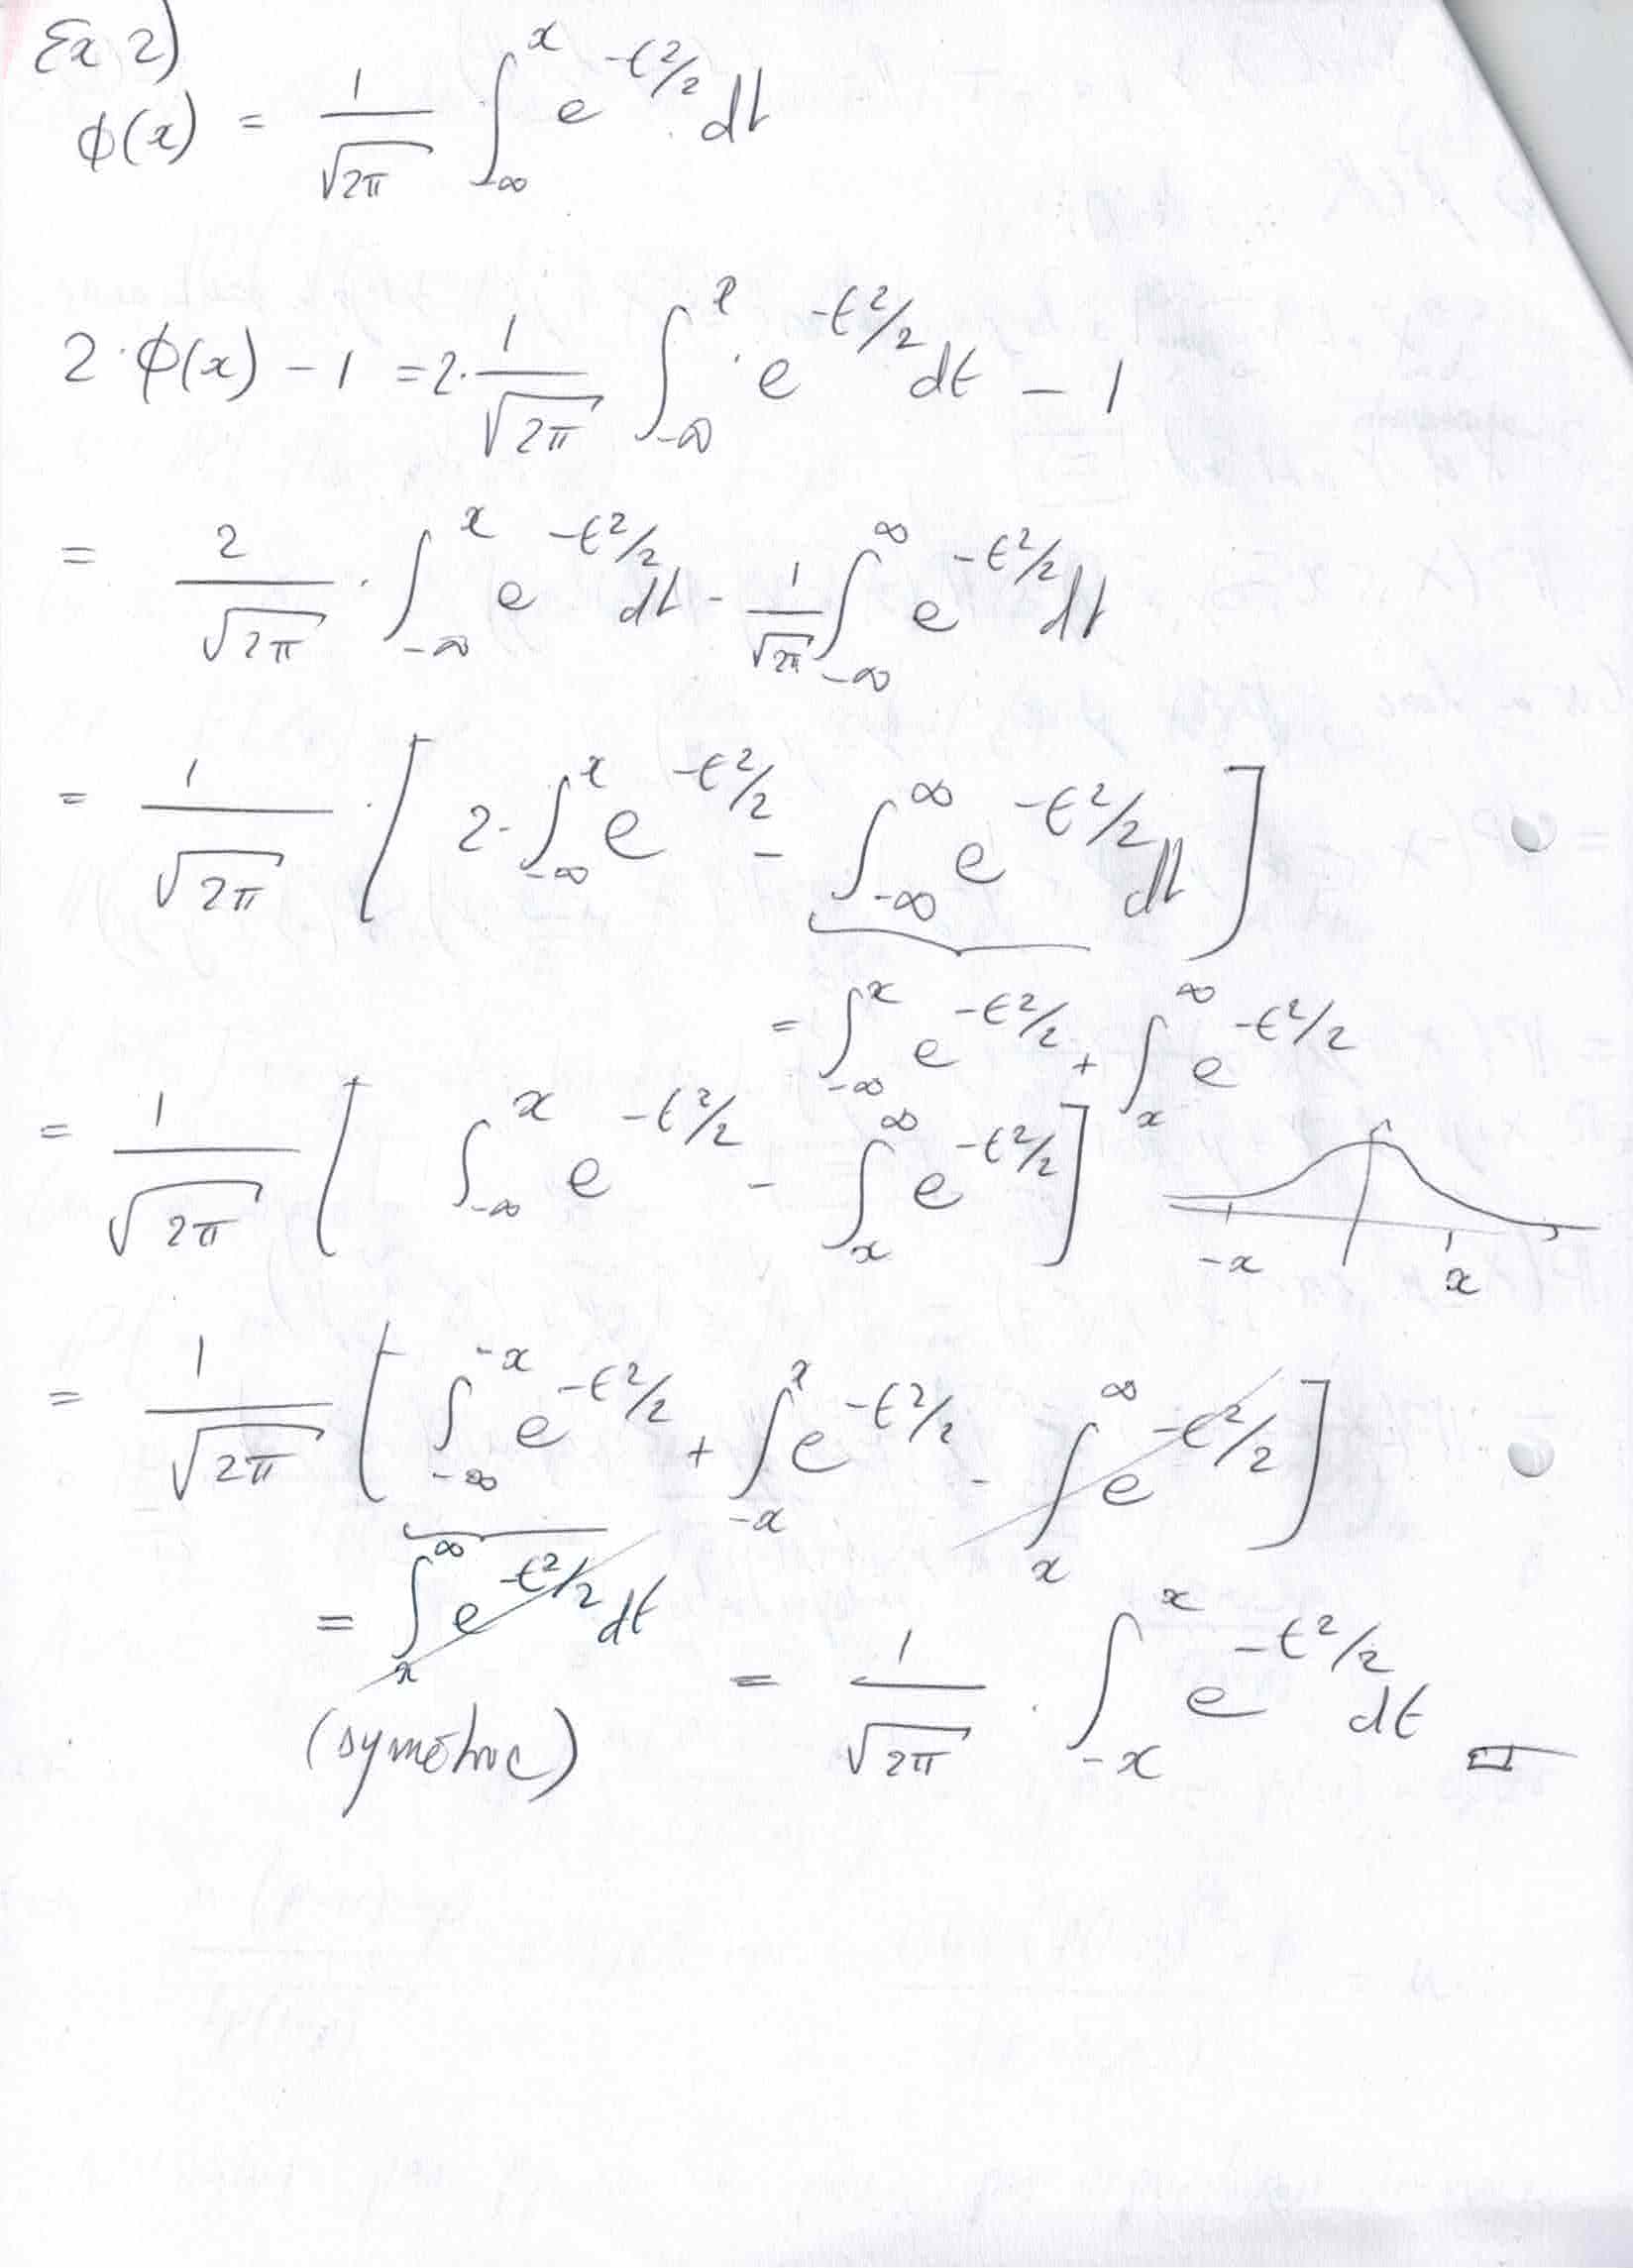 Ex 2)
ϕ(x) = 1/√2π ∫_{-∞}^{x} e^{-t²/2} dt
2·ϕ(x) - 1 = 2·1/√2π ∫_{-∞}^{x} e^{-t²/2} dt - 1
= 2/√2π · ∫_{-∞}^{x} e^{-t²/2} dt - 1/√2π ∫_{-∞}^{∞} e^{-t²/2} dt
= 1/√2π · [ 2·∫_{-∞}^{x} e^{-t²/2} - ∫_{-∞}^{∞} e^{-t²/2} dt ]
= ∫_{-∞}^{x} e^{-t²/2} + ∫_{x}^{∞} e^{-t²/2}
= 1/√2π [ ∫_{-∞}^{x} e^{-t²/2} - ∫_{x}^{∞} e^{-t²/2} ]
-x x
= 1/√2π [ ∫_{-∞}^{-x} e^{-t²/2} + ∫_{-x}^{x} e^{-t²/2} - ∫_{x}^{∞} e^{-t²/2} ]
= ∫_{x}^{∞} e^{-t²/2} dt
(symétric)
= 1/√2π · ∫_{-x}^{x} e^{-t²/2} dt □